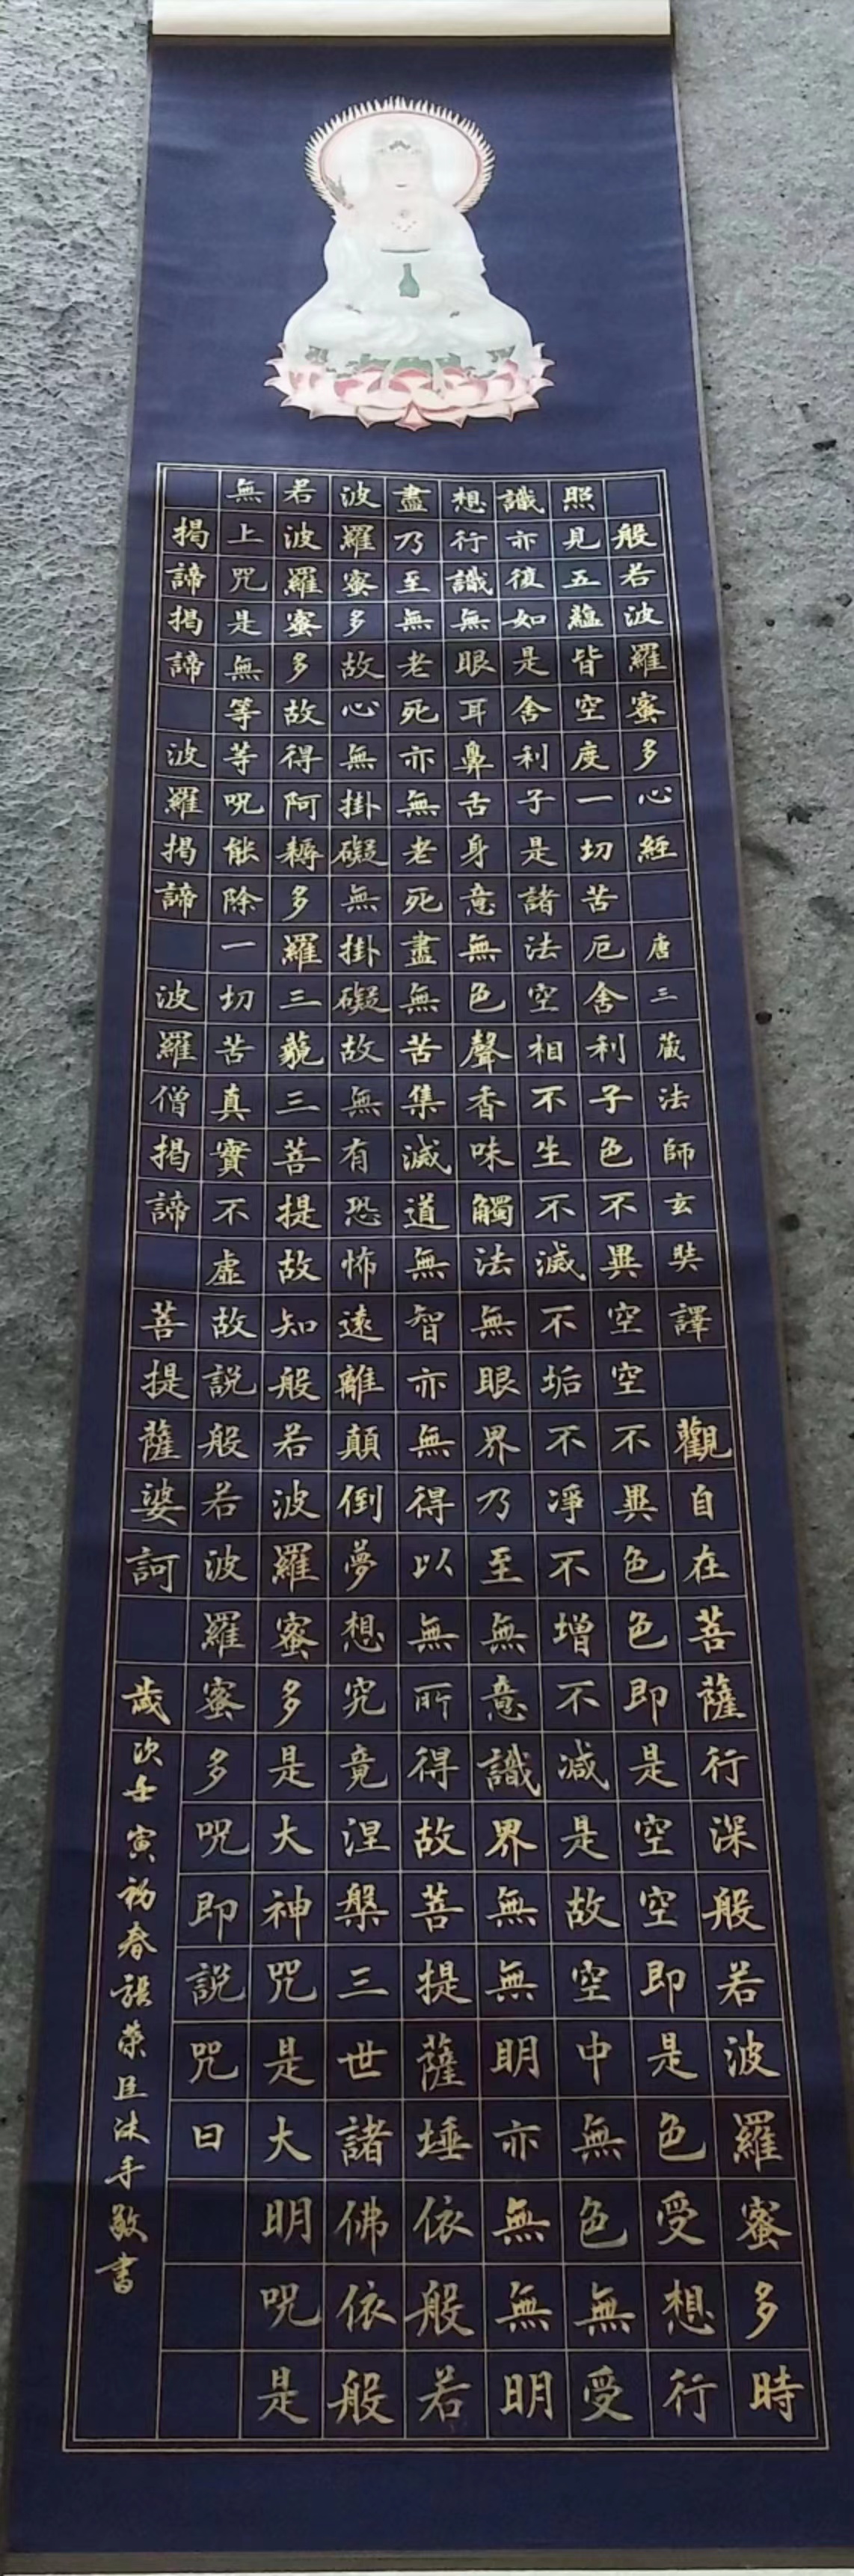 般若波羅蜜多心經 唐三藏法師玄奘譯 觀自在菩薩行深般若波羅蜜多時
照見五蘊皆空度一切苦厄舍利子色不異空空不異色色即是空空即是色受想行
識亦復如是舍利子是諸法空相不生不滅不垢不淨不增不減是故空中無色無受
想行識無眼耳鼻舌身意無色聲香味觸法無眼界乃至無意識界無無明亦無無明
盡乃至無老死亦無老死盡無苦集滅道無智亦無得以無所得故菩提薩埵依般若
波羅蜜多故心無掛礙無掛礙故無有恐怖遠離顛倒夢想究竟涅槃三世諸佛依般
若波羅蜜多故得阿耨多羅三藐三菩提故知般若波羅蜜多是大神咒是大明咒是
無上咒是無等等呪能除一切苦真實不虛故說般若波羅蜜多咒即說咒曰
揭諦揭諦 波羅揭諦 波羅僧揭諦 菩提薩婆訶 歲次壬寅初春張榮臣沐手敬書